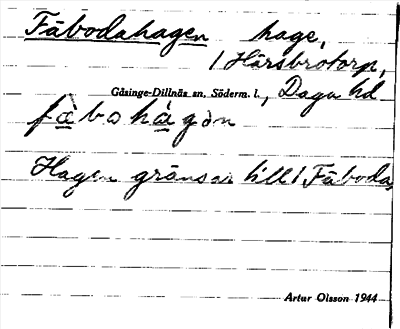 Fäbodahagen hage,
1 Härsbrotorp,
Gåsinge-Dillnäs sn, Söderm. l., Daga hd
fä̀bohà̱gən
Hagen gränsar till 1 Fäboda,
Artur Olsson 1944